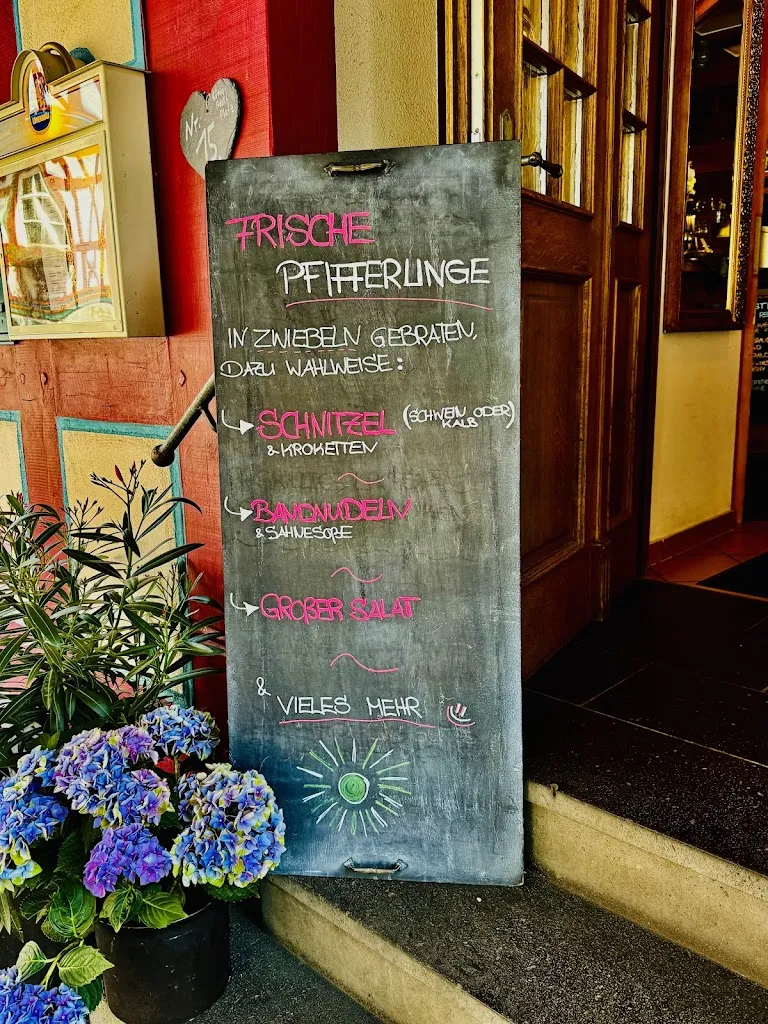 Nr.
15
FRISCHE
PFIFFERLINGE
IN ZWIEBELN GEBRATEN,
DAZU WAHLWEISE:
SCHNITZEL (SCHWEIN ODER KALB)
& KROKETTEN
BANDNUDELN
& SAHNESOßE
GROßER SALAT
& VIELES MEHR